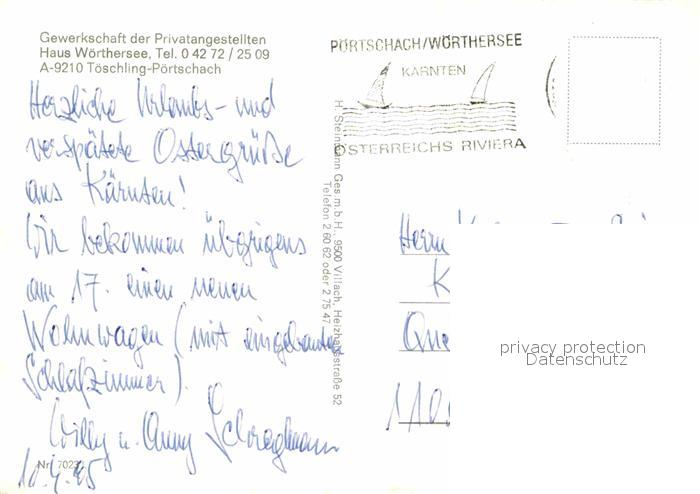 Gewerkschaft der Privatangestellten
Haus Wörthersee, Tel. 0 42 72 / 25 09
A-9210 Töschling-Pörtschach
Herzliche Urlaubs- und
verspätete Ostergrüße
aus Kärnten!
Wir bekommen übrigens
am 17. einen neuen
Wohnwagen (mit eingebauten
Schlafzimmer).
Willy u. Anny
10.4.85
Nr. 7023
H. Steinmann Ges.m.b.H. 9500 Villach, Heizhausstraße 52
Telefon 2 60 62 oder 2 75 47
PÖRTSCHACH/WÖRTHERSEE
KÄRNTEN
ÖSTERREICHS RIVIERA
Herrn
K
Que
110
privacy protection
Datenschutz